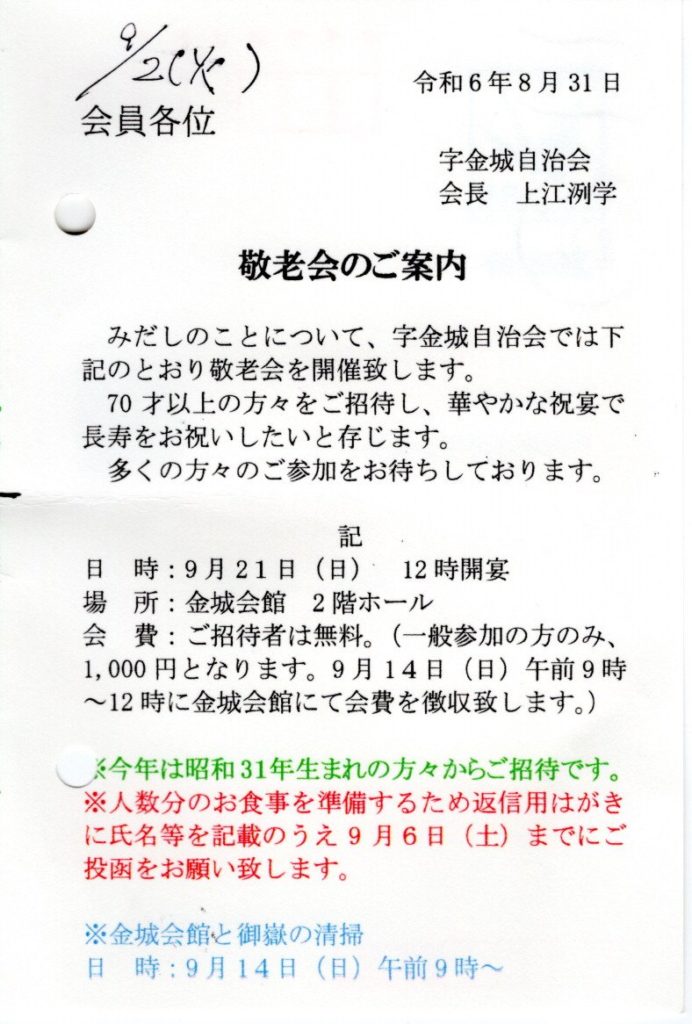 9/2(火)
令和6年8月31日
会員各位
字金城自治会
会長　上江洌学
敬老会のご案内
みだしのことについて、字金城自治会では下
記のとおり敬老会を開催致します。
70才以上の方々をご招待し、華やかな祝宴で
長寿をお祝いしたいと存じます。
多くの方々のご参加をお待ちしております。
記
日　時：9月21日（日）　12時開宴
場　所：金城会館　2階ホール
会　費：ご招待者は無料。（一般参加の方のみ、
1,000円となります。9月14日（日）午前9時
～12時に金城会館にて会費を徴収致します。）
※今年は昭和31年生まれの方々からご招待です。
※人数分のお食事を準備するため返信用はがき
に氏名等を記載のうえ9月6日（土）までにご
投函をお願い致します。
※金城会館と御嶽の清掃
日　時：9月14日（日）午前9時～